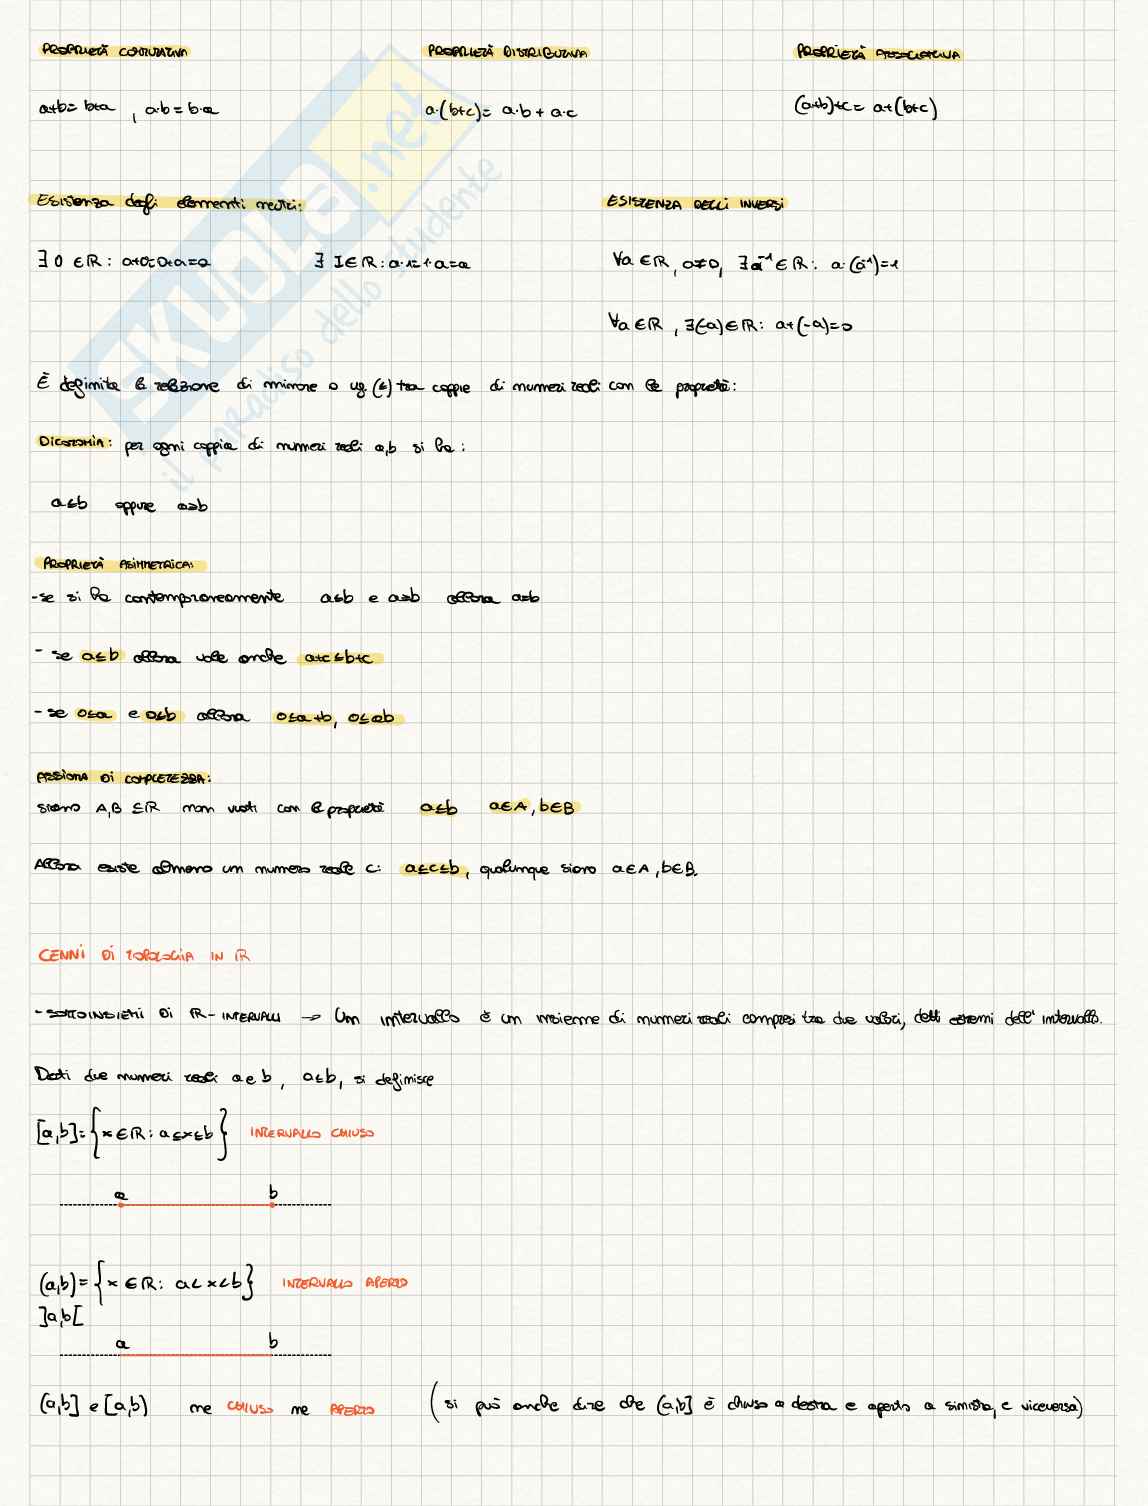 PROPRIETÀ COMMUTATIVA PROPRIETÀ DISTRIBUTIVA PROPRIETÀ ASSOCIATIVA
a+b=b+a , a·b=b·a a·(b+c)= a·b+a·c (a+b)+c= a+(b+c)
SKUOLA.net
il paradiso dello studente
Esistenza degli elementi neutri: ESISTENZA DELLI INVERSI
∃ 0 ∈ℝ: a+0=0+a=a ∃ 1∈ℝ: a·1=1·a=a ∀a∈ℝ, a≠0, ∃a⁻¹∈ℝ: a·(a⁻¹)=1
∀a∈ℝ, ∃(-a)∈ℝ: a+(-a)=0
È definita la relazione di minore o ug. (≤) tra coppie di numeri reali con le proprietà:
DICOTOMIA: per ogni coppia di numeri reali a,b si ha:
a≤b oppure a≥b
PROPRIETÀ ASIMMETRICA:
-se si ha contemporaneamente a≤b e a≥b allora a=b
- se a≤b allora vale anche a+c≤b+c
- se 0≤a e 0≤b allora 0≤a+b, 0≤ab
ASSIOMA DI COMPLETEZZA:
siano A,B ⊆ℝ non vuoti con la proprietà a≤b a∈A, b∈B
Allora esiste almeno un numero reale c: a≤c≤b, qualunque siano a∈A, b∈B.
CENNI DI TOPOLOGIA IN ℝ
- SOTTOINSIEMI DI ℝ - INTERVALLI → Un intervallo è un insieme di numeri reali compresi tra due valori, detti estremi dell'intervallo.
Dati due numeri reali a e b, a≤b, si definisce
[a,b]={x∈ℝ: a≤x≤b} INTERVALLO CHIUSO
a b
(a,b)={x∈ℝ: a<x<b} INTERVALLO APERTO
]a,b[
a b
(a,b] e [a,b) ne CHIUSO ne APERTO (si può anche dire che (a,b] è chiuso a destra e aperto a sinistra, e viceversa)